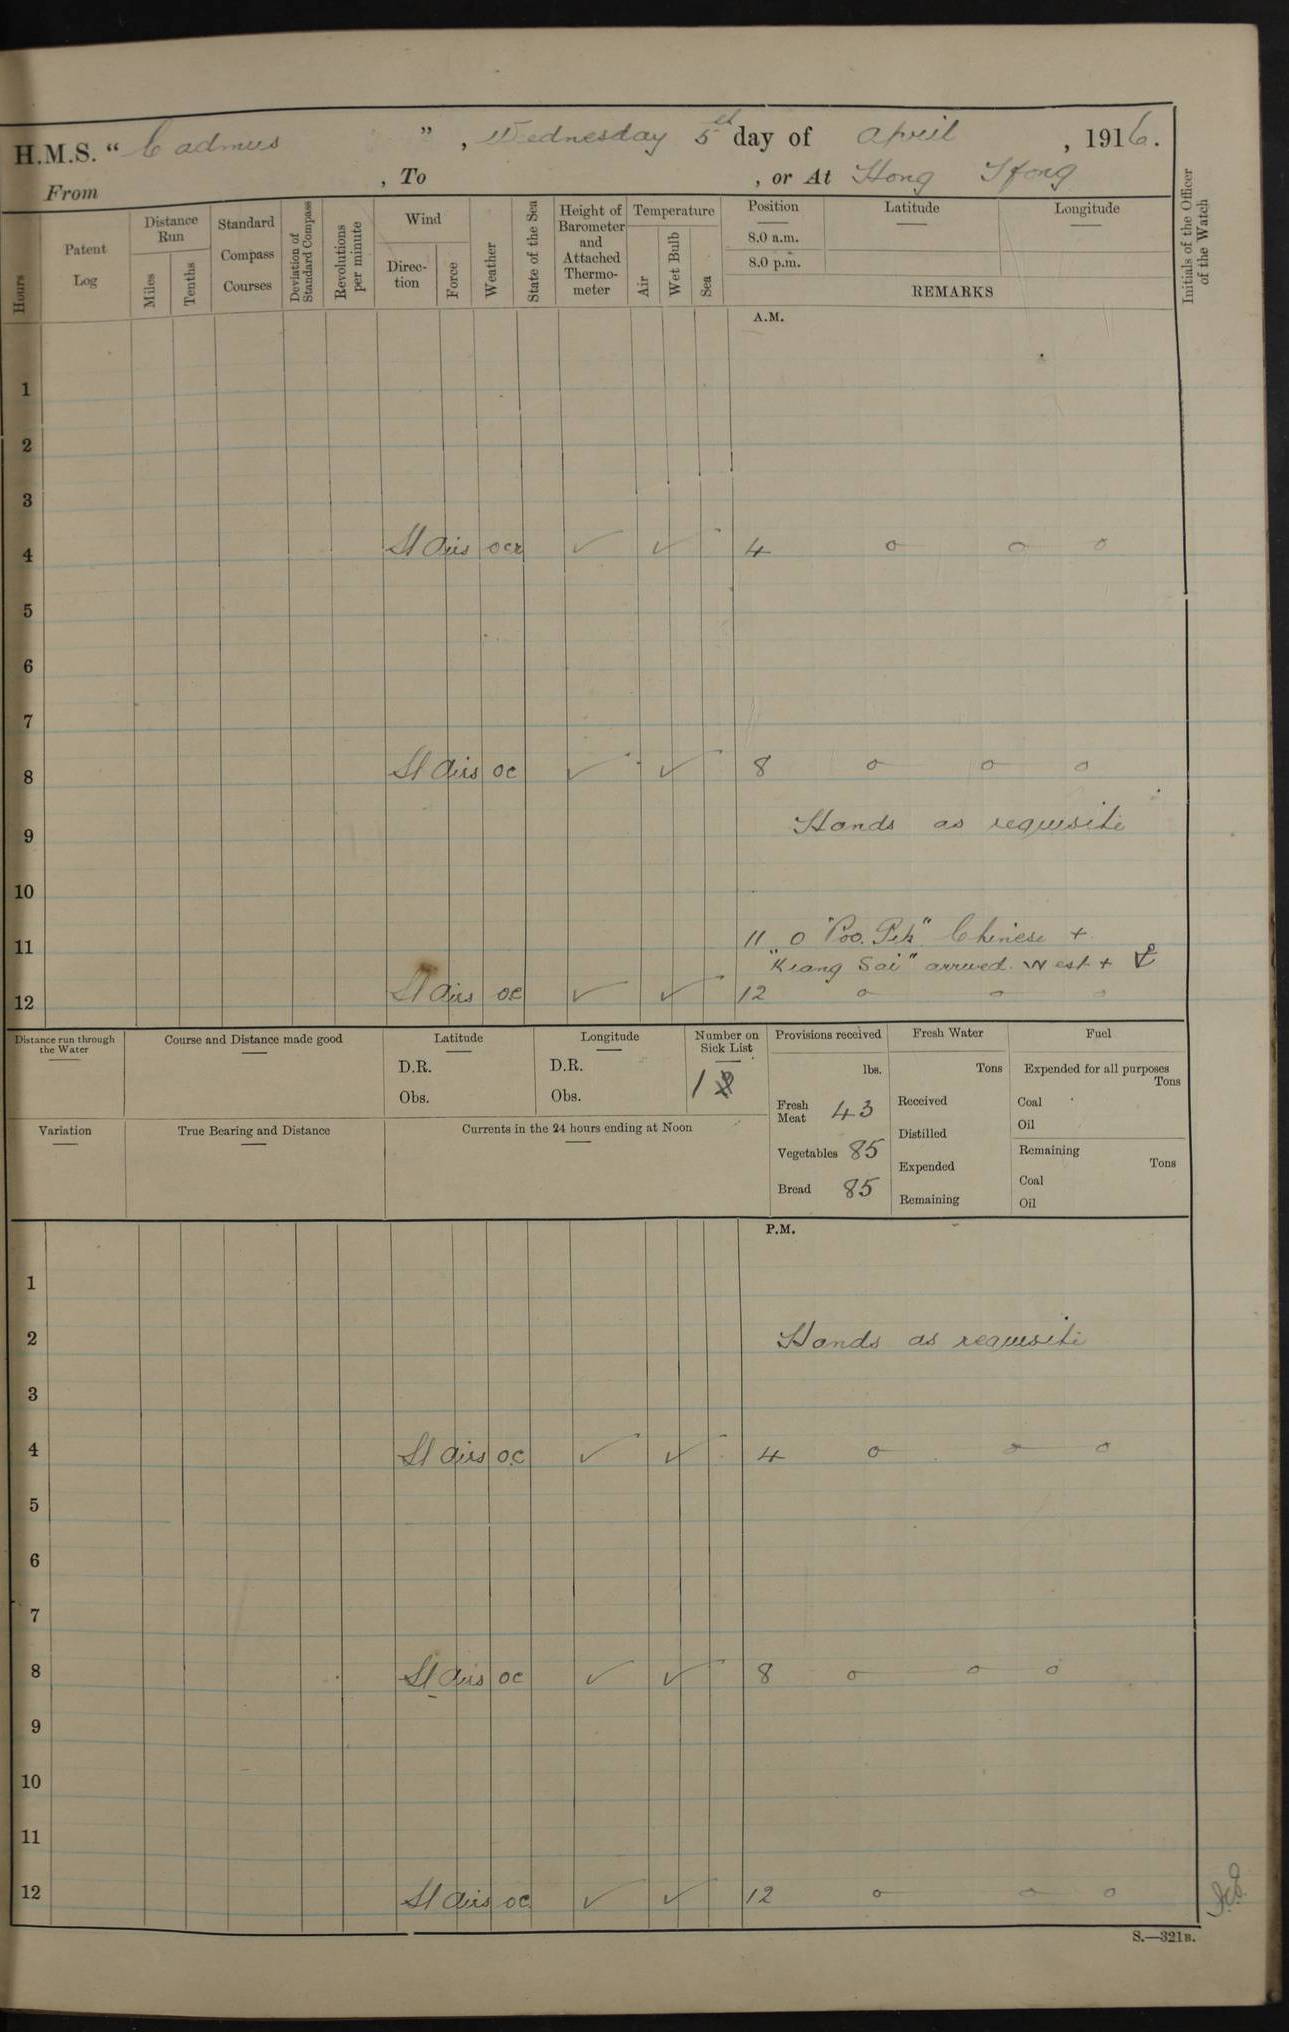 H.M.S. “ Cadmus ” , Wednesday 5th day of April , 1916.
From , To , or At Hong Kong
Hours
Patent Log
Distance Run
Miles
Tenths
Standard Compass Courses
Deviation of Standard Compass
Revolutions per minute
Wind
Direction
Force
Weather
State of the Sea
Height of Barometer and Attached Thermometer
Temperature
Air
Wet Bulb
Sea
Position
8.0 a.m.
8.0 p.m.
Latitude
Longitude
REMARKS
Initials of the Officer of the Watch
A.M.
1
2
3
4 Lt airs ocr ✓ ✓ 4 o o o
5
6
7
8 Lt airs oc ✓ ✓ 8 o o o
9 Hands as requisite
10
11 11 0 "Poo. Pik" Chinese +
"Kiang Sai" arrived. West + ⚓
12 Lt airs oc ✓ ✓ 12 o o o
Distance run through the Water
Course and Distance made good
Latitude
D.R.
Obs.
Longitude
D.R.
Obs.
Number on Sick List
Provisions received
lbs.
Fresh Meat 43
Vegetables 85
Bread 85
Fresh Water
Tons
Received
Distilled
Expended
Remaining
Fuel
Expended for all purposes
Tons
Coal
Oil
Remaining
Tons
Coal
Oil
Variation
True Bearing and Distance
Currents in the 24 hours ending at Noon
P.M.
1
2 Hands as requisite
3
4 Lt airs oc ✓ ✓ 4 o o o
5
6
7
8 Lt airs oc ✓ ✓ 8 o o o
9
10
11
12 Lt airs oc ✓ ✓ 12 o o o
S.—321B.